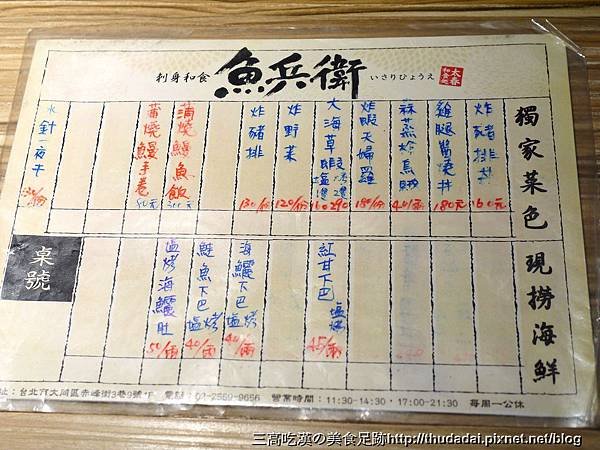 刺身和食 魚兵衛 いさりひょうえ
獨家菜色
炸豬排丼 160元
雞腿醬燒丼 180元
蒜蓉炸烏賊 40/兩
炸蝦天婦羅 180/份
大海草蝦 鹽烤 160 290
炸野菜 120/份
炸豬排 130/份
蒲燒鰻魚飯 300元
蒲燒鰻手卷 80元
水針一夜干
現撈海鮮
紅甘下巴 塩烤 45/兩
海鱺下巴 塩烤 40/兩
鮭魚下巴 塩烤 40/兩
塩烤海鱺肚 50/兩
桌號
址：台北市大同區赤峰街3巷9號1F 電話：02-2559-9656 營業時間：11:30-14:30，17:00-21:30 每周一公休
三高吃漢の美食足跡http://thudadai.pixnet.net/blog